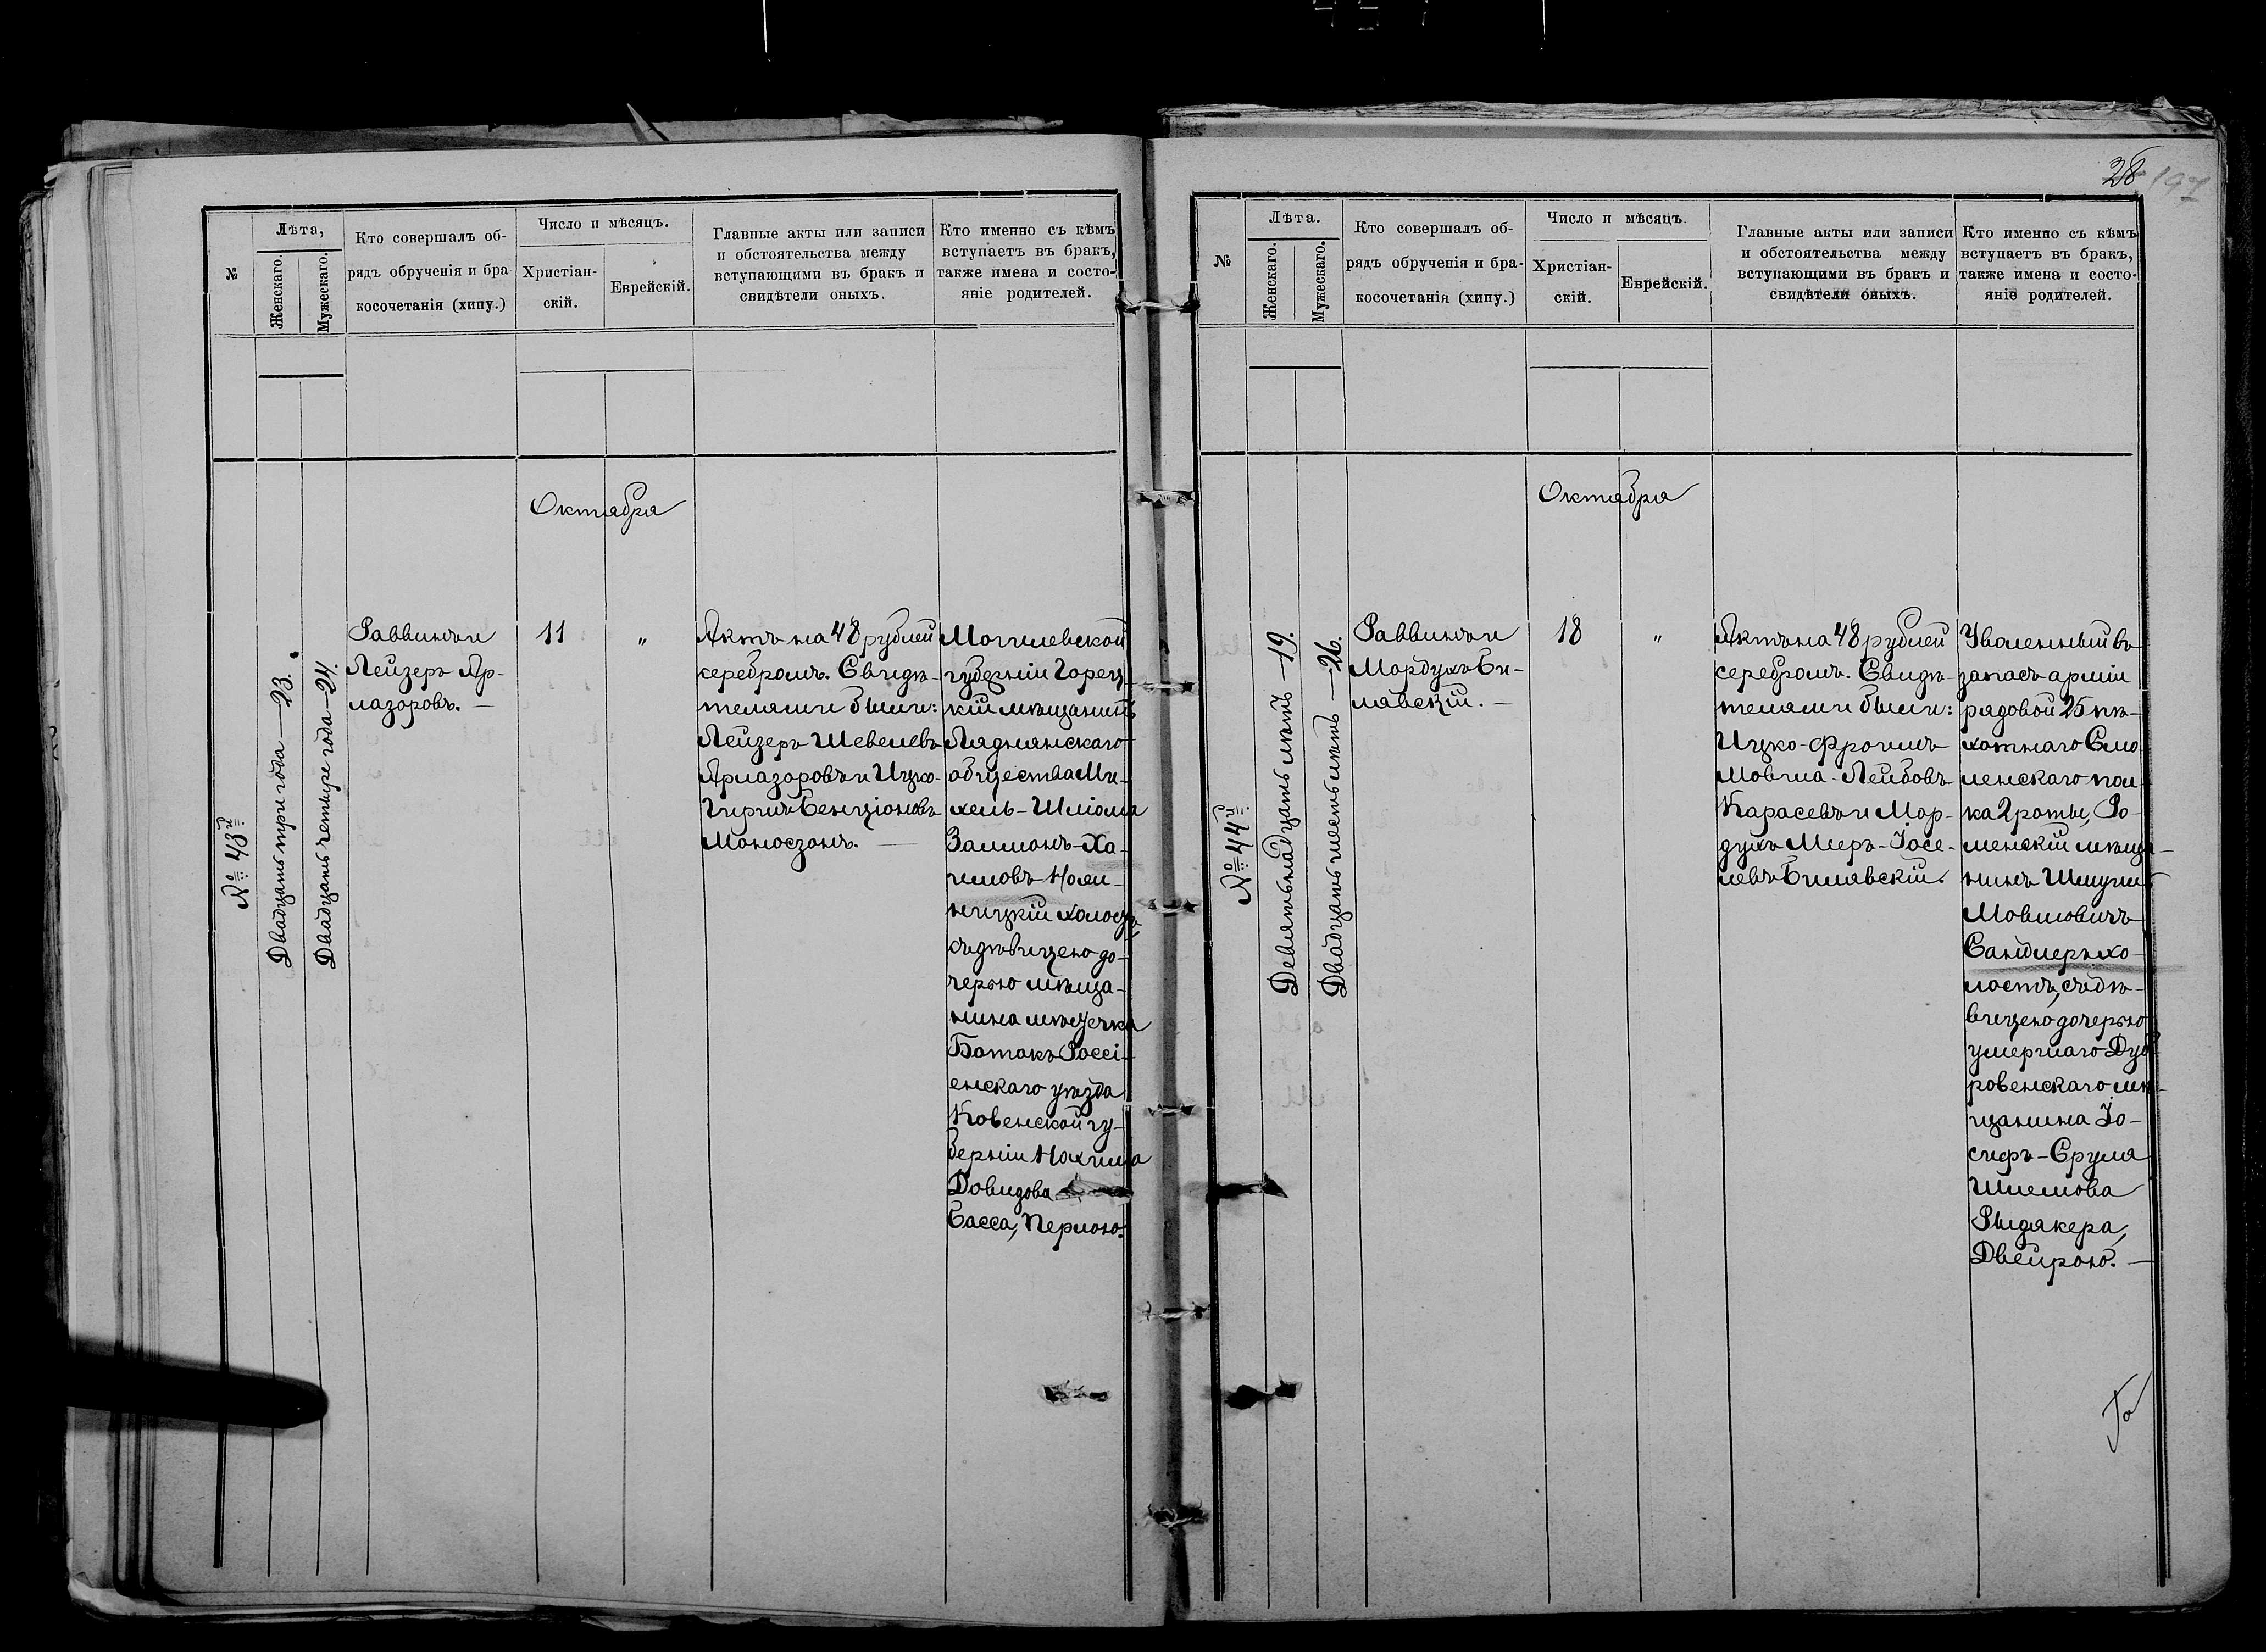 №
Лѣта,
Женскаго.
Мужескаго.
Кто совершалъ об-
рядъ обрученія и бра
косочетанія (хипу.)
Число и мѣсяцъ.
Христіан-
скій.
Еврейскій.
Главные акты или записи
и обстоятельства между
вступающими въ бракъ и
свидѣтели оныхъ.
Кто именно съ кѣмъ
вступаетъ въ бракъ,
также имена и состо-
яніе родителей.
Октября
№ 43й
Двадцать три года — 23.
Двадцать четыре года — 24.
Раввинъ и
Лейзеръ Яр-
лазоровъ. —
11
"
Актъ на 48 рублей
серебромъ. Свидѣ-
телями были:
Лейзеръ Шевелевъ
Ярлазоровъ и Ицко-
Гиршъ Бенціоновъ
Моносзонъ. —
Могилевской
губерніи Горец
кій мѣщанинъ
Ляднянскаго
общества Ми-
хель-Шліома
Залманъ-Ха-
имовъ
холостъ
съ дѣвицею до-
черью мѣща-
нина мѣстечка
Батакъ Россі-
енскаго уѣзда
Ковенской гу-
берніи Нахима
Довидова
Басса, Перлою.
28 197
№
Лѣта.
Женскаго.
Мужескаго.
Кто совершалъ об-
рядъ обрученія и бра-
косочетанія (хипу.)
Число и мѣсяцъ.
Христіан-
скій.
Еврейскій.
Главные акты или записи
и обстоятельства между
вступающими въ бракъ и
свидѣтели оныхъ.
Кто именно съ кѣмъ
вступаетъ въ бракъ,
также имена и состо-
яніе родителей.
Октября
№ 44й
Девятьнадцать лѣтъ — 19.
Двадцать шесть лѣтъ — 26.
Раввинъ и
Мордухъ Би-
лявскій. —
18
"
Актъ на 48 рублей
серебромъ. Свидѣ-
телями были:
Ицко-Фроимъ
Мовша-Лейбовъ
Карасевъ и Мор-
духъ Меръ-Іосе-
левъ Билявскій.
Уволенный въ
запасъ арміи
рядовой 25 пѣ-
хотнаго Смо
ленскаго пол
ка 2 роты, Ро-
менскій мѣща-
нинъ Шмуилъ
Мовшовичъ
Сандлеръ хо-
лостъ, съ дѣ-
вицею дочерью
умершаго Дуб
ровенскаго мѣ-
щанина Іо-
сифъ-Сруля
Шлемова
Рыдякера,
Двейрою. —